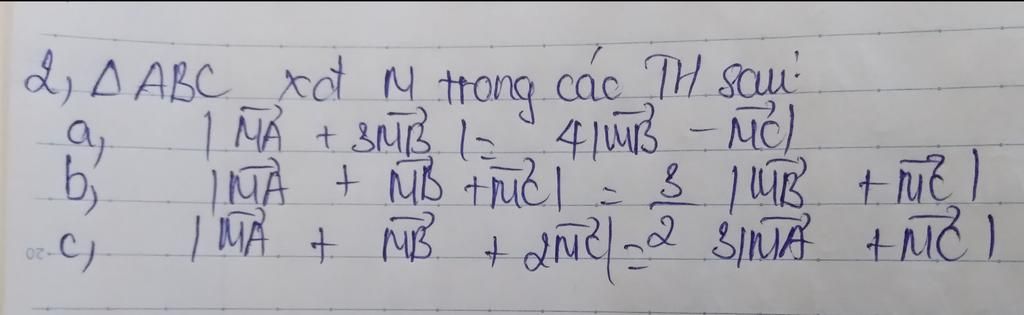 2, △ABC xđ M trong các TH sau:
a, |MA⃗ + 3MB⃗| = 4|MB⃗ - MC⃗|
b, |MA⃗ + MB⃗ + MC⃗| = 3/2 |MB⃗ + MC⃗|
c, |MA⃗ + MB⃗ + 2MC⃗| = 3|MA⃗ + MC⃗|